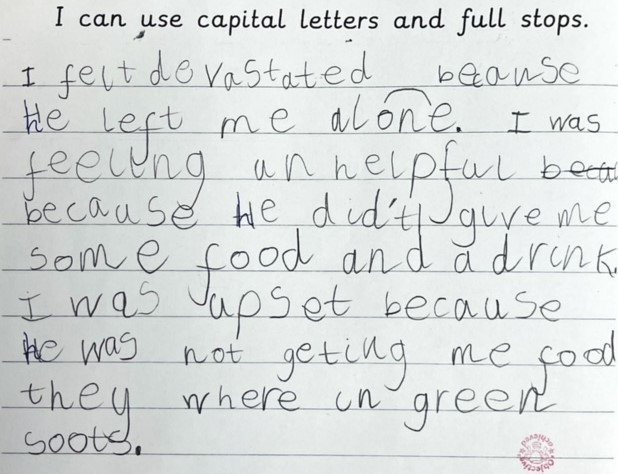 I can use capital letters and full stops.
I felt devastated beause
He left me alone. I was
feeling unhelpful beca
because He did't give me
some food and a drink.
I was upset because
He was not geting me food
they where in green
soots.